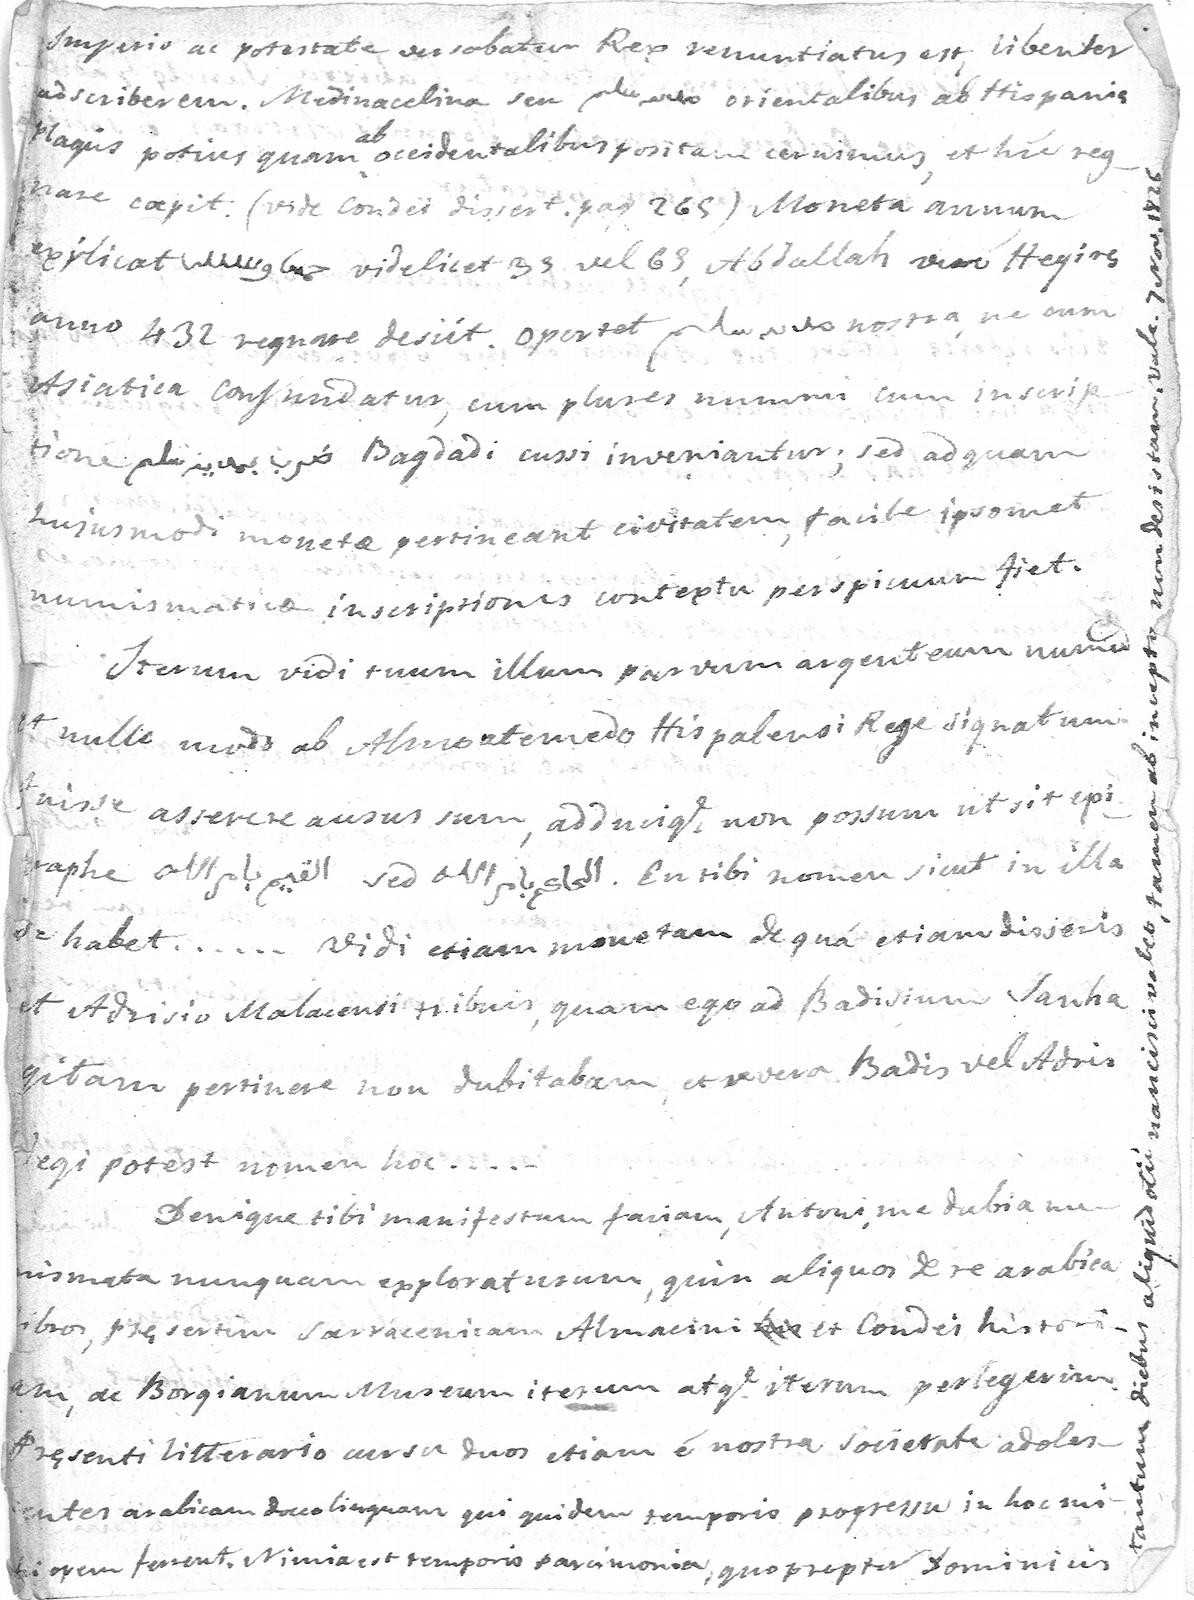 Imperio ac potestate versabatur Rex renuntiatus est, libenter
adscriberem. Medinacelina seu مدينة سالم orientalibus ab Hispanię
plagiis potius quam ab occidentalibus positam cernimus, et hić reg-
nare cœpit. (vide Condei dissert. pag 265) Moneta annum
explicat videlicet 35 vel 65, Abdallah veró Hegirę
anno 432 regnare desiit. Oportet مدينة سالم nostra, ne cum
Asiatica confundatur, cum plures nummi cum inscrip
tione ضرب بمدينة سالم Bagdadi cussi inveniantur; sed ad quam
hujusmodi monetæ pertineant civitatem, facile ipsomet
numismaticæ inscriptionis contextu perspicuum fiet.
Iterum vidi tuum illum parvum argenteum
et nullo modo ab Almoatemedo Hispalensi Rege signatum
fuisse asserere ausus sum, adduciq. non possum ut sit epi-
graphe بامر الله sed بامر الله. En tibi nomen sicut in illa
se habet...... Vidi etiam monetam de quá etiam disseris
et Adrisio Malacensi tribuis, quam ego ad Badisium Sanha
gitam pertinere non dubitabam, et revera Badis vel Adris
legi potest nomen hoc.....
Denique tibi manifestum faciam, Antoni, me dubia nu-
mismata nunquam exploraturum, quin aliquos de re arabica
libros, pręsertim Sarracenicam Almacini et Condei histori-
am, ac Borgianum Museum iterum atq. iterum perlegerim.
Pręsenti litterario cursu duos etiam é nostra societate adoles-
centes arabicam doceo linguam qui quidem temporis progressu in hoc mi-
hi opem ferrent. Nimia est temporis parcimonia, quopropter Dominicis
tantum diebus aliquid otii nancisci valeo, tamen ab incepto non desistam. Vale. 7 Nov. 1826